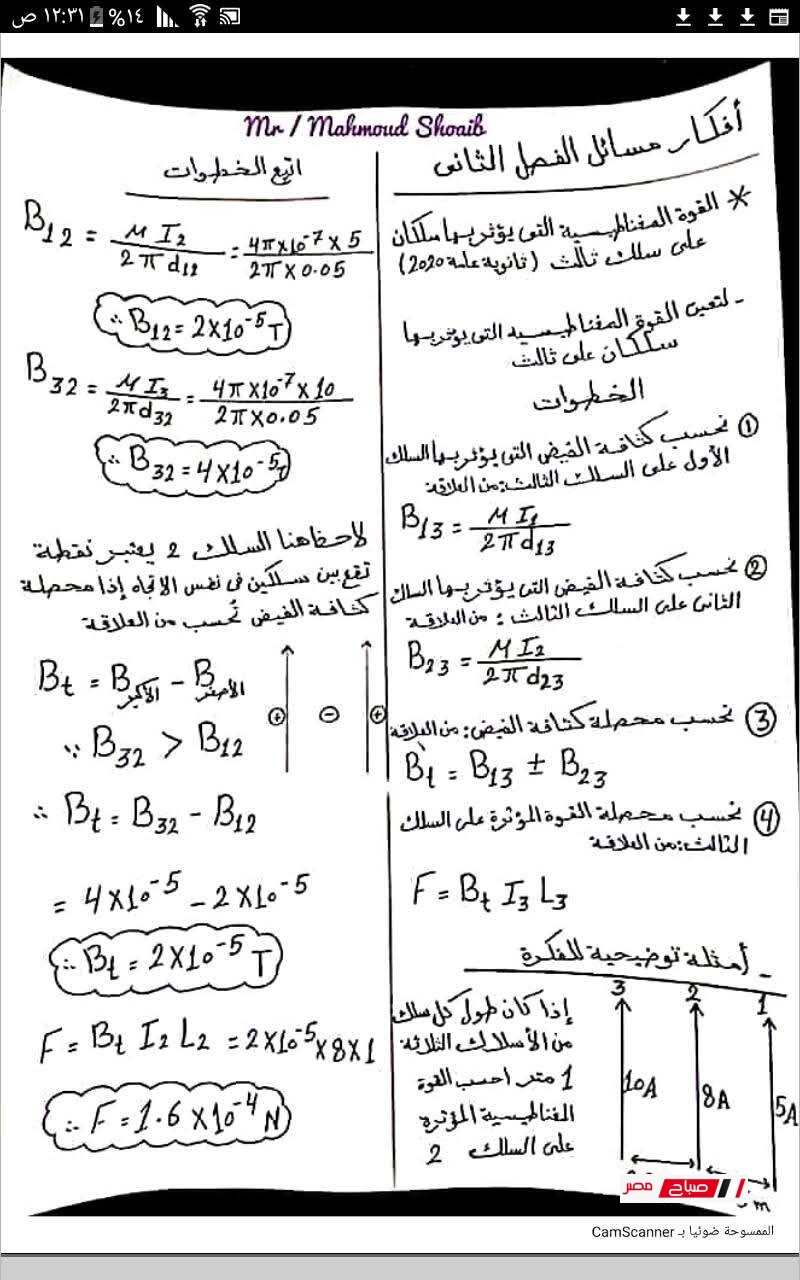 ١٢:٣١ ص
١٤%
Mr / Mahmoud Shoaib
أفكار مسائل الفصل الثانى
* القوة المغناطيسية التى يؤثر بها سلكان
على سلك ثالث (ثانوية عامة 2020)
- لتعين القوة المغناطيسية التى يؤثر بها
سلكان على ثالث
الخطوات
① نحسب كثافة الفيض التى يؤثر بها السلك
الأول على السلك الثالث: من العلاقة
B13 = μ I1 / 2π d13
② نحسب كثافة الفيض التى يؤثر بها السلك
الثانى على السلك الثالث: من العلاقة
B23 = μ I2 / 2π d23
③ نحسب محصلة كثافة الفيض: من العلاقة
Bt = B13 ± B23
④ نحسب محصلة القوة المؤثرة على السلك
الثالث: من العلاقة
F = Bt I3 L3
- أمثلة توضيحية للفكرة
إذا كان طول كل سلك
من الأسلاك الثلاثة
1 متر احسب القوة
المغناطيسية المؤثرة
على السلك 2
3 2 1
10A 8A 5A
اتبع الخطوات
B12 = μ I2 / 2π d12 = 4π×10-7 × 5 / 2π × 0.05
∴ B12 = 2×10-5 T
B32 = μ I3 / 2π d32 = 4π×10-7 × 10 / 2π×0.05
∴ B32 = 4×10-5 T
لاحظ هنا السلك 2 يعتبر نقطة
تقع بين سلكين فى نفس الاتجاه إذا محصلة
كثافة الفيض تُحسب من العلاقة
Bt = B الأكبر - B الأصغر
+ - +
∵ B32 > B12
∴ Bt = B32 - B12
= 4×10-5 - 2×10-5
∴ Bt = 2×10-5 T
F = Bt I2 L2 = 2×10-5 × 8 × 1
∴ F = 1.6 × 10-4 N
صباح مصر
الممسوحة ضوئيا بـ CamScanner